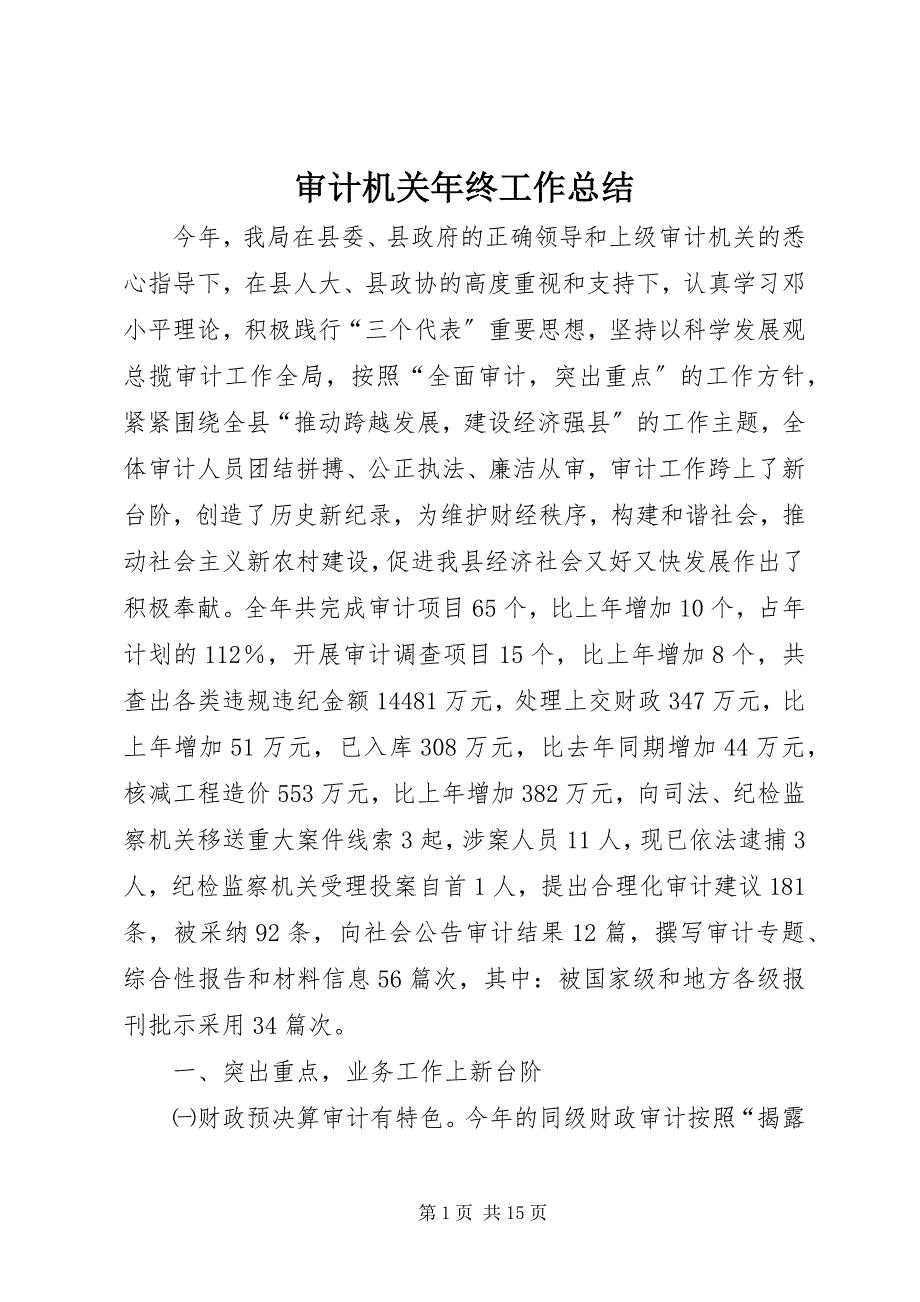 审计机关年终工作总结
今年，我局在县委、县政府的正确领导和上级审计机关的悉
心指导下，在县人大、县政协的高度重视和支持下，认真学习邓
小平理论，积极践行“三个代表〞重要思想，坚持以科学发展观
总揽审计工作全局，按照“全面审计，突出重点〞的工作方针，
紧紧围绕全县“推动跨越发展，建设经济强县〞的工作主题，全
体审计人员团结拼搏、公正执法、廉洁从审，审计工作跨上了新
台阶，创造了历史新纪录，为维护财经秩序，构建和谐社会，推
动社会主义新农村建设，促进我县经济社会又好又快发展作出了
积极奉献。全年共完成审计项目 65 个，比上年增加 10 个，占年
计划的 112％，开展审计调查项目 15 个，比上年增加 8 个，共
查出各类违规违纪金额 14481 万元，处理上交财政 347 万元，比
上年增加 51 万元，已入库 308 万元，比去年同期增加 44 万元，
核减工程造价 553 万元，比上年增加 382 万元，向司法、纪检监
察机关移送重大案件线索 3 起，涉案人员 11 人，现已依法逮捕 3
人，纪检监察机关受理投案自首 1 人，提出合理化审计建议 181
条，被采纳 92 条，向社会公告审计结果 12 篇，撰写审计专题、
综合性报告和材料信息 56 篇次，其中：被国家级和地方各级报
刊批示采用 34 篇次。
一、突出重点，业务工作上新台阶
㈠财政预决算审计有特色。今年的同级财政审计按照“揭露
第 1 页 共 15 页